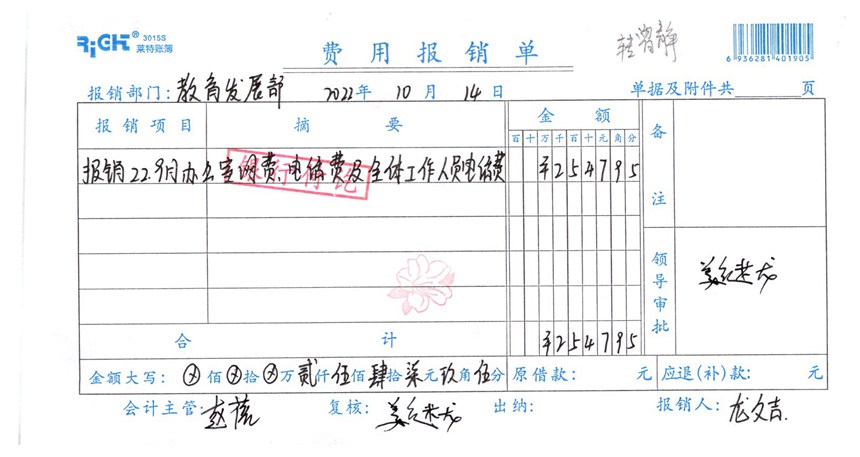 RiGHT® 3015S
莱特账簿
费用报销单
6 936281 401905
报销部门：教育发展部 2022年 10月 14日 单据及附件共 页
报销项目 摘要 金额 备注
百 十 万 千 百 十 元 角 分
报销22.9月办公室网费、电话费及全体工作人员电话费 ¥254795
银行付讫
领导审批
合计 ¥254795
金额大写：ⓧ佰ⓧ拾ⓧ万贰仟伍佰肆拾柒元玖角伍分 原借款： 元 应退(补)款： 元
会计主管： 复核： 出纳： 报销人：龙文吉